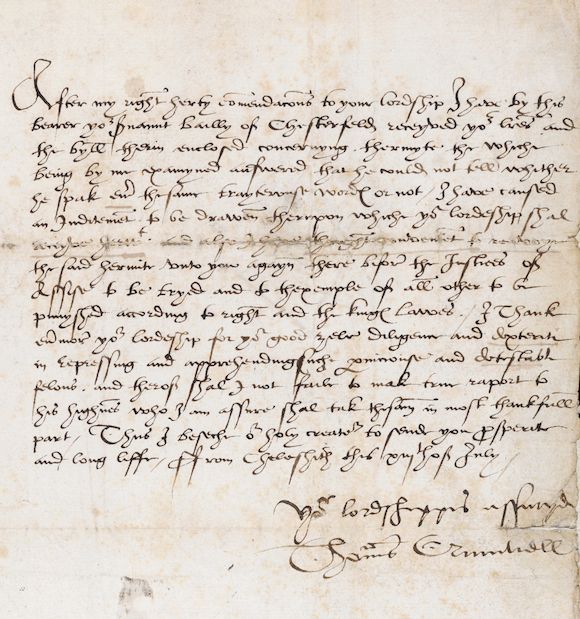 After my right herty comendacons to your lordship I have by this
bearer yor srvaunt Bailly of Chesterfeld receyved yor lres and
the byll therin enclosed concernyng thermyte the whiche
being by me examyned answered that he could not tell whether
he spak eny the same traytorouse words or not / I have caused
an Inditement to be drawen therupon whiche yor lordeship shal
receyve herewt. and also I have thought convenient to
the said hermite unto you agayn there before the Justices of
Assise to be tryed and to thexemple of all other to be
punysshed according to right and the kings lawes / I Thank
yor lordeship for yor good zele diligence and dexterite
in repressing and apprehending suche pniciouse and detestable
felons. and therof shal I not faile to mak true raport to
his highnes who I am assure shal tak thesam in most thankfull
part / Thus I beseche or holy creator to send you prosperite
and long liffe / From Chelsehith this xiith of July /
Yor lordshippis assuryd
Thomas Crumwell